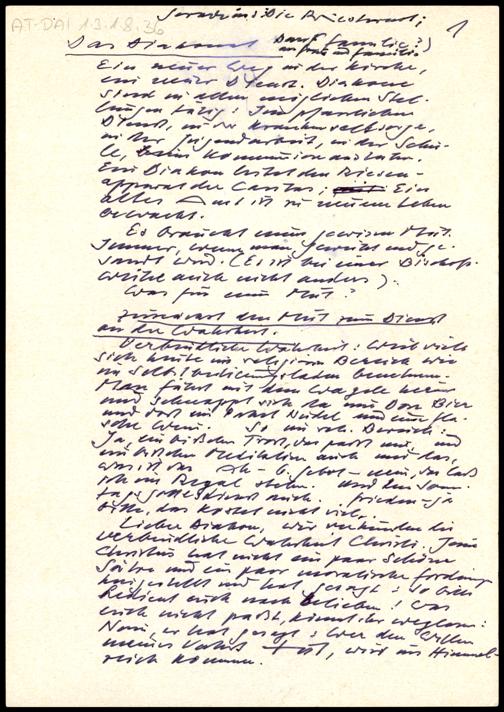 AT-DAI 13.1.8.36
1
Das Diakonat
Ein neuer Weg in der Kirche,
ein neuer Dienst. Diakone
sind in allen möglichen Stel-
lungen tätig: Im pfarrlichen
Dienst, in der Krankenseelsorge,
in der Jugendarbeit, in der Schu-
le, beim Kommunionausteilen.
Ein Diakon leitet den Riesen-
apparat der Caritas; Ein
altes Amt ist zu neuem Leben
erwacht.
Es braucht einen gewissen Mut.
Immer, wenn man geweiht und ge-
sandt wird. (Es ist bei einer Bischofs-
weihe auch nicht anders).
Was für ein Mut?
zunächst den Mut zum Dienst
an der Wahrheit.
Verbindliche Wahrheit: Weil viele
sich heute im religiösen Bereich wie
im Selbstbedienungsladen benehmen.
Man fährt mit dem Wagele herum
und schnappt sich da eine Dose Bier
und dort ein Paket Nudel und eine Fla-
sche Wein. So im rel. Bereich:
Ja, ein bißchen Trost, das paßt mir, und
ein bißchen Meditation auch und das,
was ist das Ah - 6. Gebot - nein, das laß
ich im Regal stehen. Und den Sonn-
tagsgottesdienst auch. Frieden - ja
bitte, das kostet nicht viel.
Lieber Diakon, wir verkünden die
verbindliche Wahrheit Christi. Jesus
Christus hat nicht ein paar schöne
Sätze und ein paar moralische Forderungen
hingestellt und hat gesagt: So bitte
bedient euch nach Belieben! Was
euch nicht paßt, könnt ihr weglassen!
Nein, er hat gesagt: Wer den Willen
meines Vaters tut, wird ins Himmel-
reich kommen.